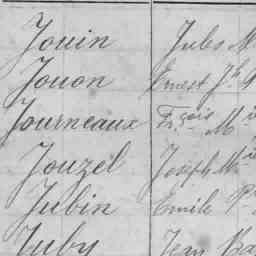 Jouin Jules M
Jouon Ernest Jh
Journeaux Fçois Mie
Jouzel Joseph Mie
Jubin Emile P
Juby Jean